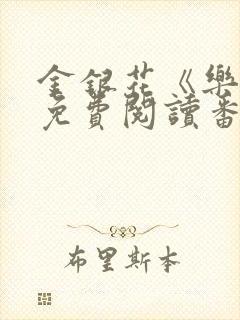 金銀花《樂
免費閱讀番
布里斯本